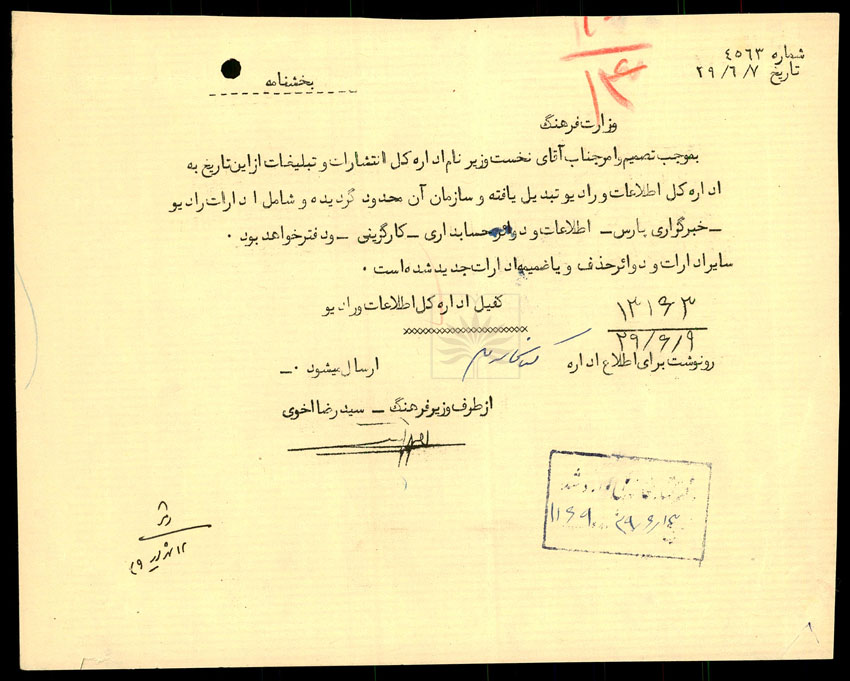 شماره ۴۵۶۳
تاریخ ۲۹/۶/۷
بخشنامه
وزارت فرهنگ
بموجب تصمیم و امر جناب آقای نخست وزیر نام اداره کل انتشارات و تبلیغات از این تاریخ به
اداره کل اطلاعات و رادیو تبدیل یافته و سازمان آن محدود گردیده و شامل ادارات رادیو
ـ خبرگزاری پارس ـ اطلاعات و دوائر حسابداری ـ کارگزینی ـ و دفتر خواهد بود ۰
سایر ادارات و دوائر حذف و یا ضمیمه ادارات جدید شده است ۰
کفیل اداره کل اطلاعات و رادیو
۱۳۱۶۳
۲۹/۶/۹
رونوشت برای اطلاع اداره کتابخانه ملی ارسال میشود ۰ـ
از طرف وزیر فرهنگ ـ سید رضا اخوی
۱۱۶۹ ۲۹/۶/۱۳